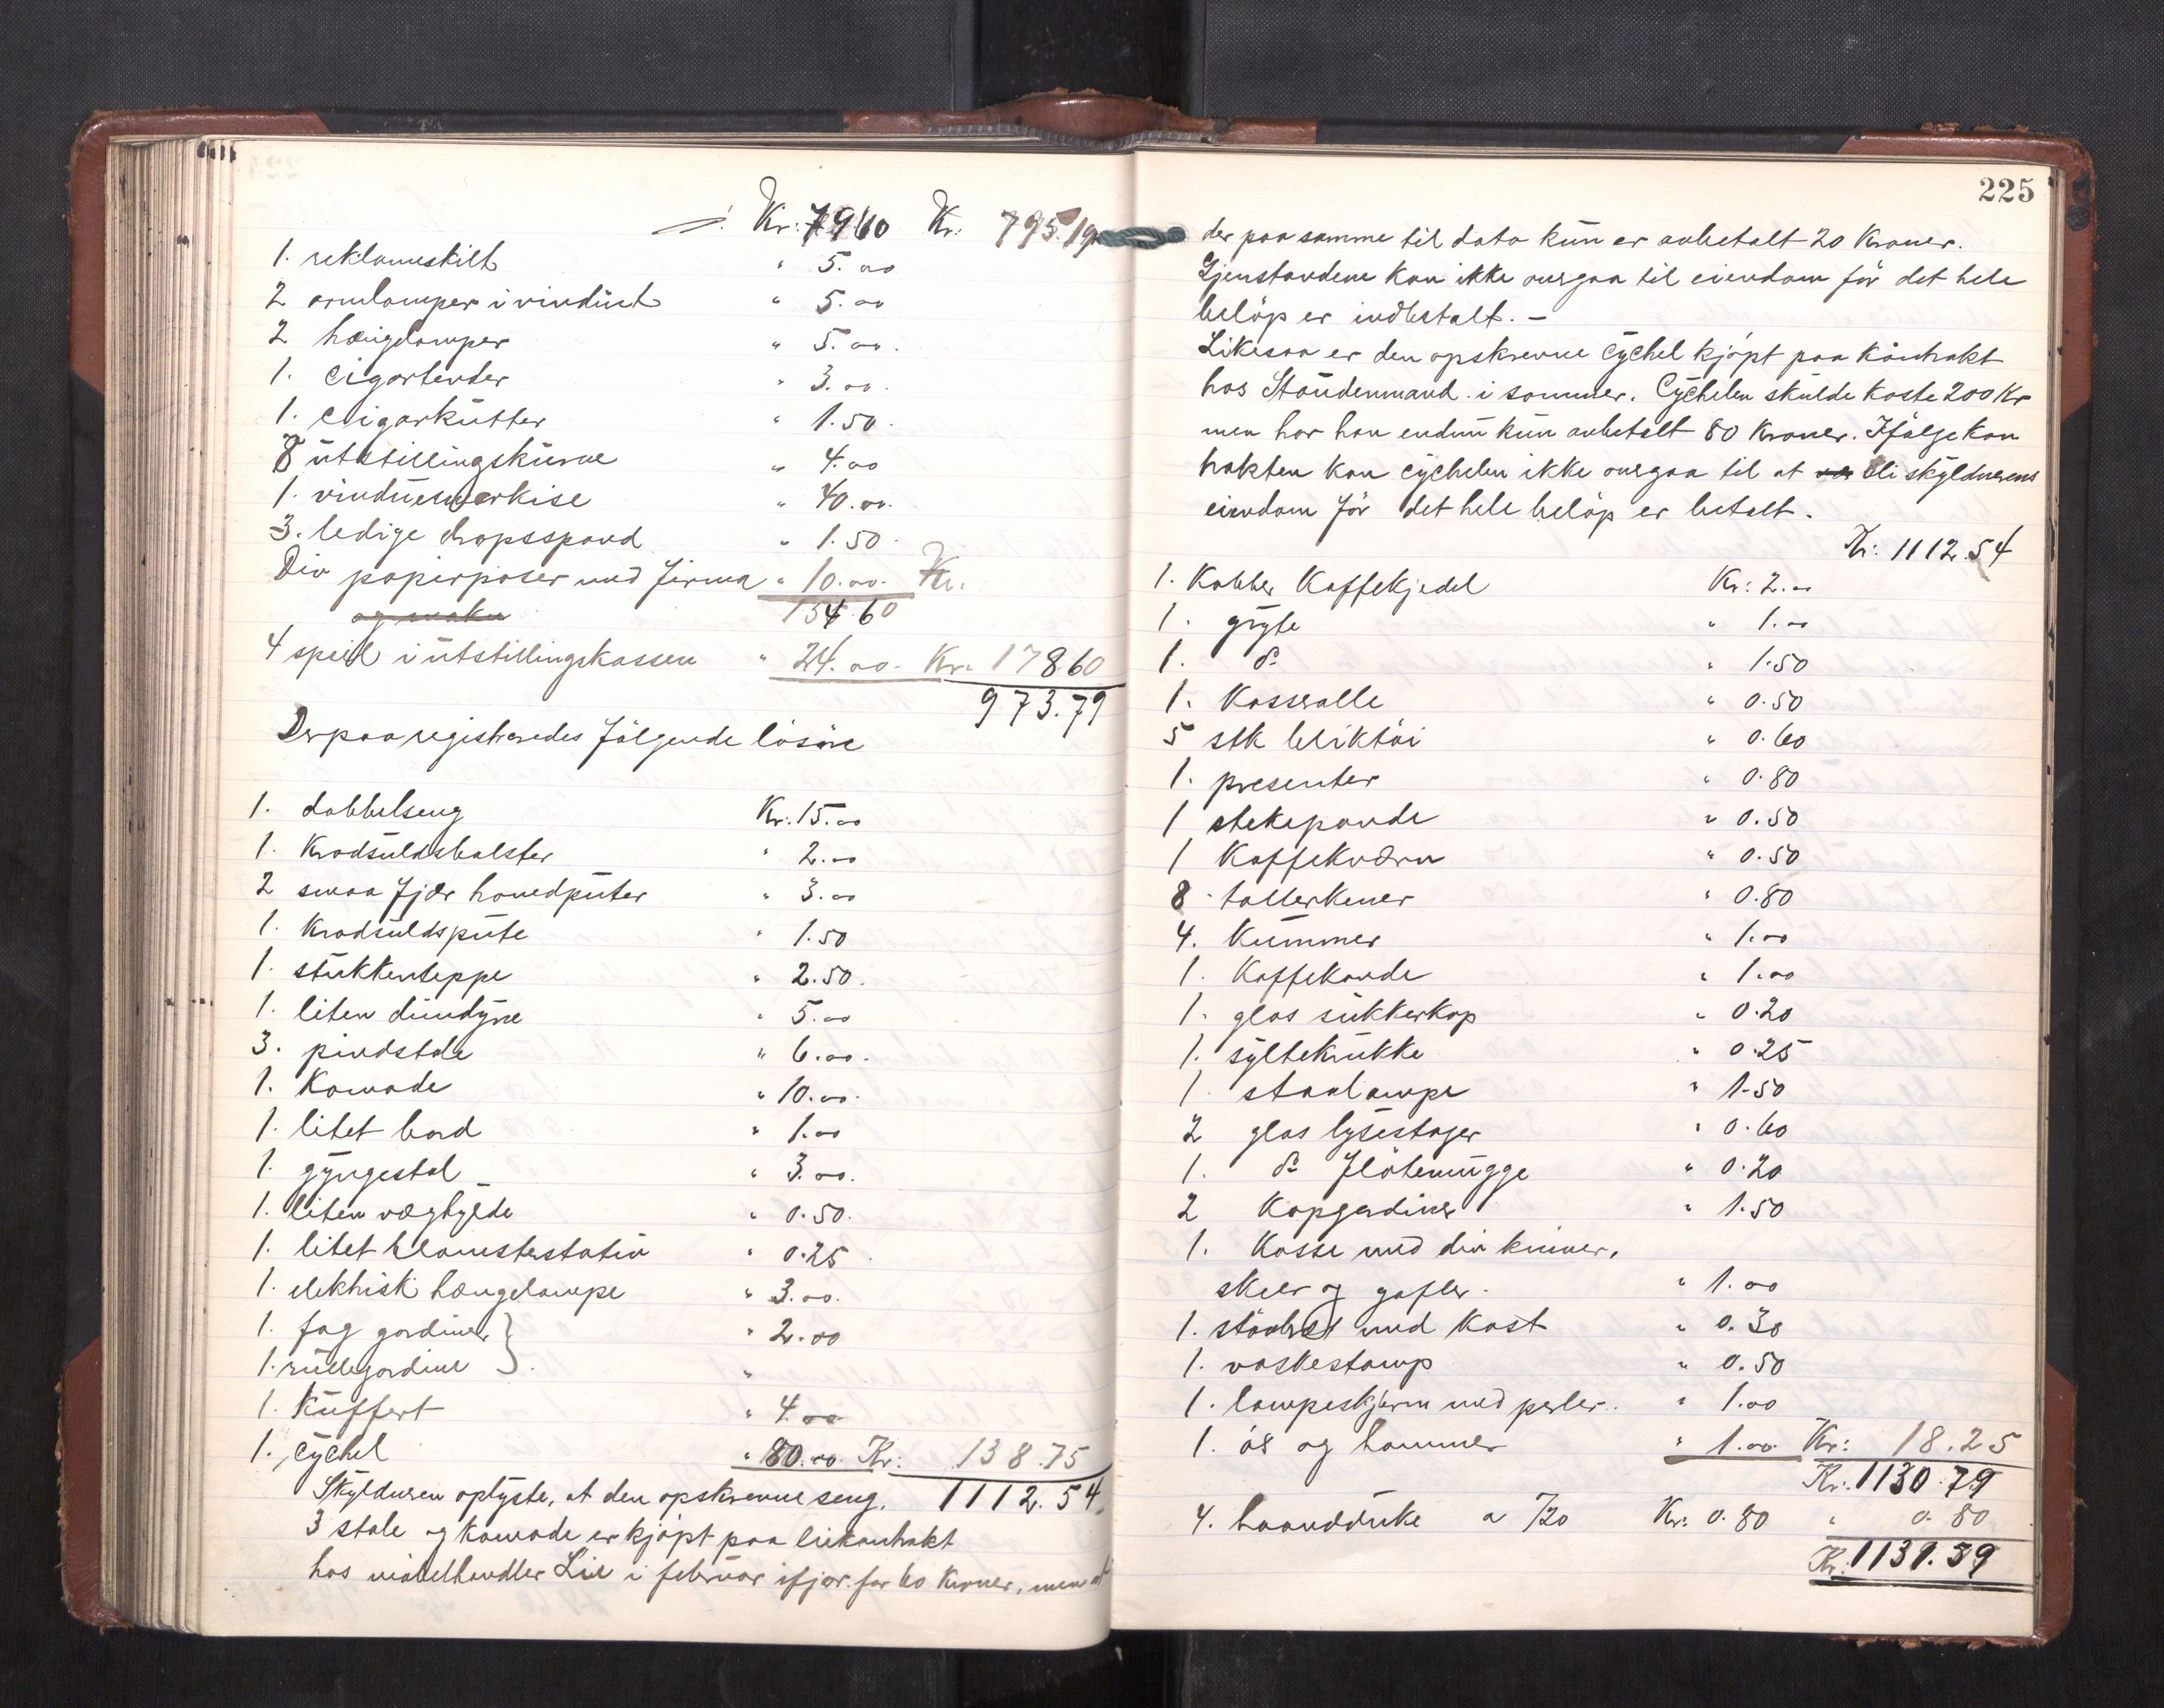 Kr: 79.60 Kr. 795.19
1. reklameskilt " 5.00
2 armlamper i vinduet " 5.00
2 hænglamper " 5.00.
1. Cigartender " 3.00.
1. Cigarkutter " 1.50.
8 utstillingskurve " 4.00
1. vinduesmarkise " 40.00.
3. ledige dropsspand " 1.50.
Div papirposer med firma " 10.00. Kr.
154.60
4 speil i utstillingskassen " 24.00. Kr. 178.60
973.79
Derpaa registreredes følgende løsøre
1. dobbelseng Kr: 15.00
1. Krøduldsbolster " 2.00
2 smaa fjær hovedputer " 3.00
1. Krøduldspute " 1.50
1. stukkenteppe " 2.50.
1. liten dundyne " 5.00
3. pindstole " 6.00.
1. Komode " 10.00.
1. litet bord " 1.00
1. gyngestol " 3.00.
1. liten væghylde " 0.50.
1. litet blomsterstativ " 0.25
1. elektrisk hængelampe " 3.00.
1. fag gardiner } " 2.00
1. rullegardine } "
1. Kuffert " 4.00
1. Cychel " 80.00 Kr: 138.75
Skyldneren oplyste, at den opskrevne seng, 1112.54.
3 stole og komode er kjøpt paa leiekontrakt
hos møbelhandler Lie i februar ifjor for 60 Kroner, men at
225
der paa samme til dato kun er anbetalt 20 Kroner.
Gjenstandene kan ikke overgaa til eiendom før det hele
beløp er indbetalt. –
Likesaa er den opskrevne Cychel kjøpt paa Kontrakt
hos Staudenmand i sommer. Cychelen skulde koste 200 Kr
men har han endnu kun anbetalt 80 Kroner. Ifølge kon
trakten kan cychelen ikke overgaa til at bli skyldnerens
eiendom før det hele beløp er betalt.
Kr: 1112.54
1. Kobber Kaffekjedel Kr: 2.00
1. gryte " 1.00
1. do " 1.50
1. Kasserolle " 0.50
5 stk bliktøi " 0.60
1. presenter " 0.80
1 stekepande " 0.50
1 Kaffekværn " 0.50
8 tallerkener " 0.80
4. Kummer " 1.00
1. Kaffekande " 1.00
1. glas sukkerkop " 0.20
1. syltekrukke " 0.25
1. staalampe " 1.50
2 glas lysestager " 0.60
1. do fløtemugge " 0.20
2 Kapgardiner " 1.50
1. Kasse med div kniver,
skeer og gafler. " 1.00
1. støvbret med Kost " 0.30
1. vaskestamp " 0.50
1. lampeskjerm med perler. " 1.00
1. øs og hammer " 1.00 Kr: 18.25
Kr. 1130.79
4. haandduke a /20 Kr: 0.80 " 0.80
Kr. 1131.59